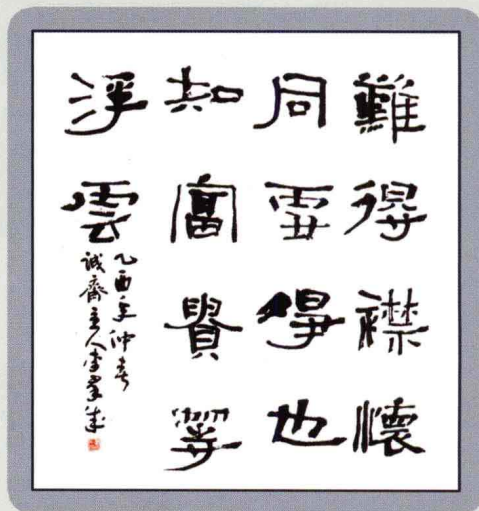 難得襟懷
同雪淨也
知富貴等
浮雲
乙酉年仲春
誠齋主人李